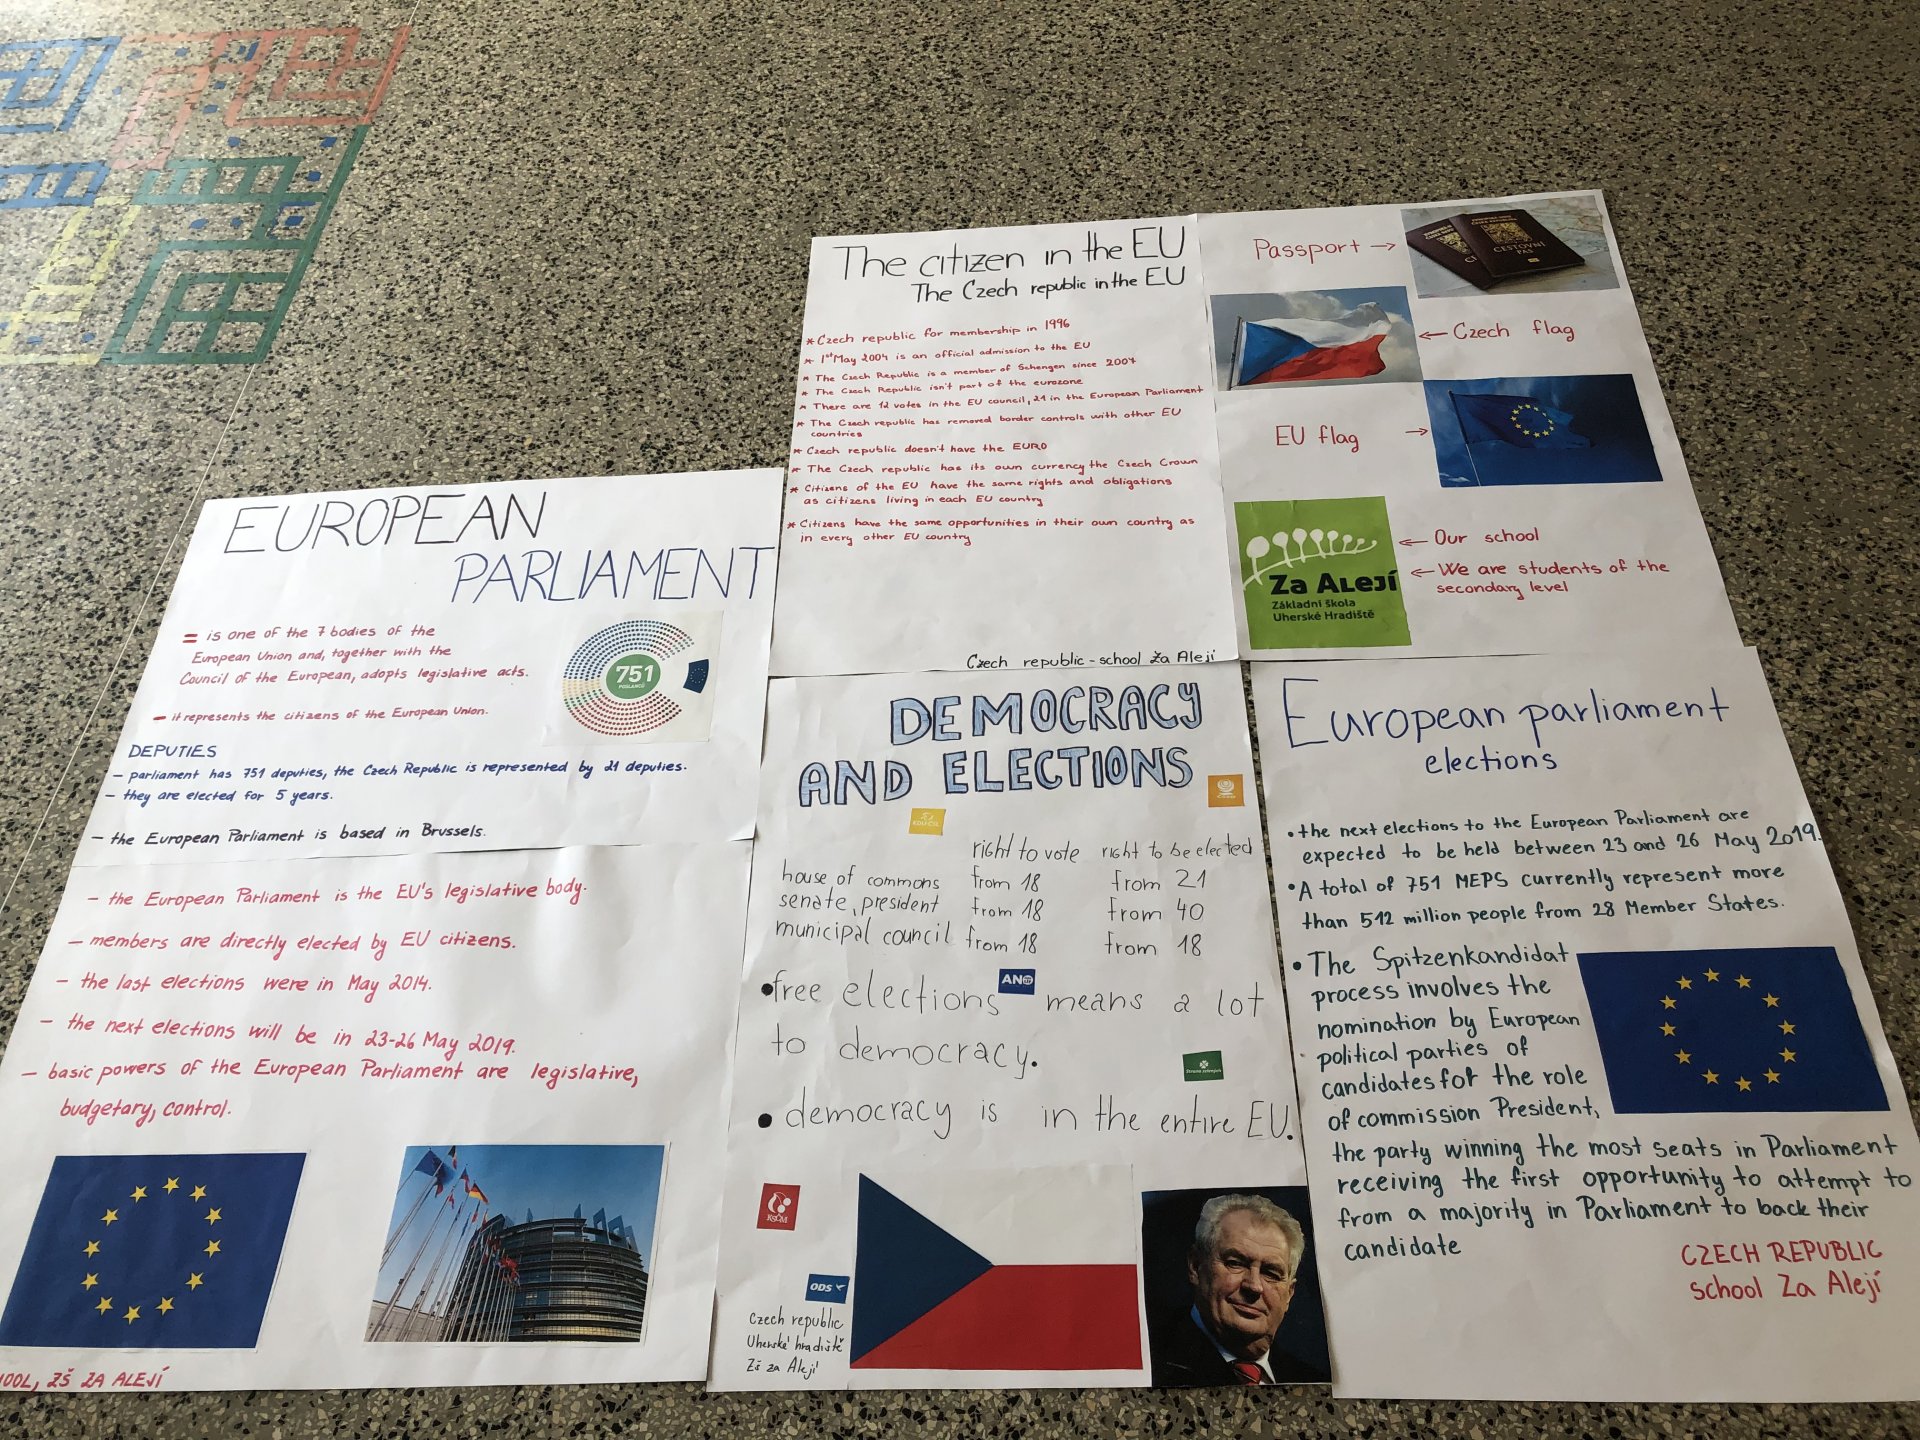 The citizen in the EU
The Czech republic in the EU
* Czech republic for membership in 1996
* 1st May 2004 is an official admission to the EU
* The Czech Republic is a member of Schengen since 2007
* The Czech Republic isn't part of the eurozone
* There are 12 votes in the EU council, 21 in the European Parliament
* The Czech republic has removed border controls with other EU
countries
* Czech republic doesn't have the EURO
* The Czech republic has its own currency the Czech Crown
* Citizens of the EU have the same rights and obligations
as citizens living in each EU country
* Citizens have the same opportunities in their own country as
in every other EU country
Czech republic - school Za Alejí
Passport →
CESTOVNÍ
PAS
← Czech flag
EU flag →
← Our school
← We are students of the
secondary level
Za Alejí
Základní škola
Uherské Hradiště
EUROPEAN
PARLIAMENT
= is one of the 7 bodies of the
European Union and, together with the
Council of the European, adopts legislative acts.
- it represents the citizens of the European Union.
751
POSLANCŮ
DEPUTIES
- parliament has 751 deputies, the Czech Republic is represented by 21 deputies.
- they are elected for 5 years.
- the European Parliament is based in Brussels.
- the European Parliament is the EU's legislative body.
- members are directly elected by EU citizens.
- the last elections were in May 2014.
- the next elections will be in 23-26 May 2019.
- basic powers of the European Parliament are legislative,
budgetary, control.
OOL, ZŠ ZA ALEJÍ
DEMOCRACY
AND ELECTIONS
KDU-ČSL
right to vote right to be elected
house of commons from 18 from 21
senate, president from 18 from 40
municipal council from 18 from 18
• free elections means a lot
ANO
to democracy.
Strana zelených
• democracy is in the entire EU.
KSČM
ODS
Czech republic
Uherské hradiště
Zš za Alejí
European parliament
elections
• the next elections to the European Parliament are
expected to be held between 23 and 26 May 2019.
• A total of 751 MEPS currently represent more
than 512 million people from 28 Member States.
• The Spitzenkandidat
process involves the
nomination by European
political parties of
candidates for the role
of commission President,
the party winning the most seats in Parliament
receiving the first opportunity to attempt to
from a majority in Parliament to back their
candidate
CZECH REPUBLIC
school Za Alejí